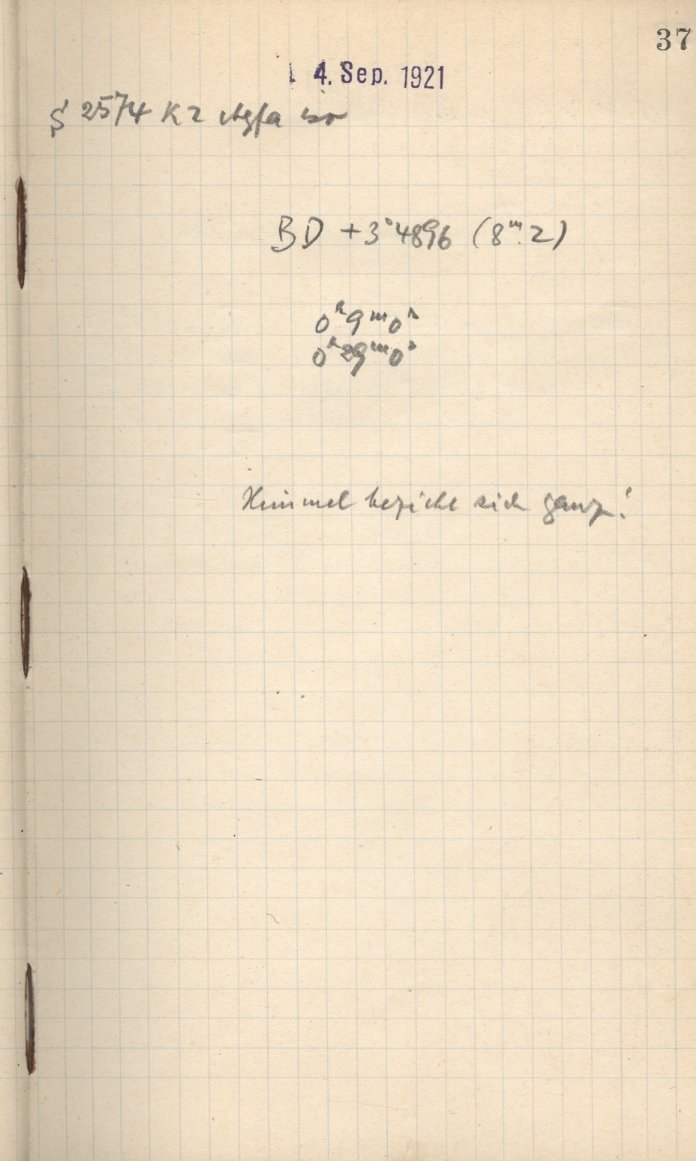 37
4. Sep. 1921
2574 K2 Agfa iso
BD +3°4896 (8ᵐ.2)
0ʰ9ᵐ0ˢ
0ʰ29ᵐ0ˢ
Himmel bezieht sich ganz!